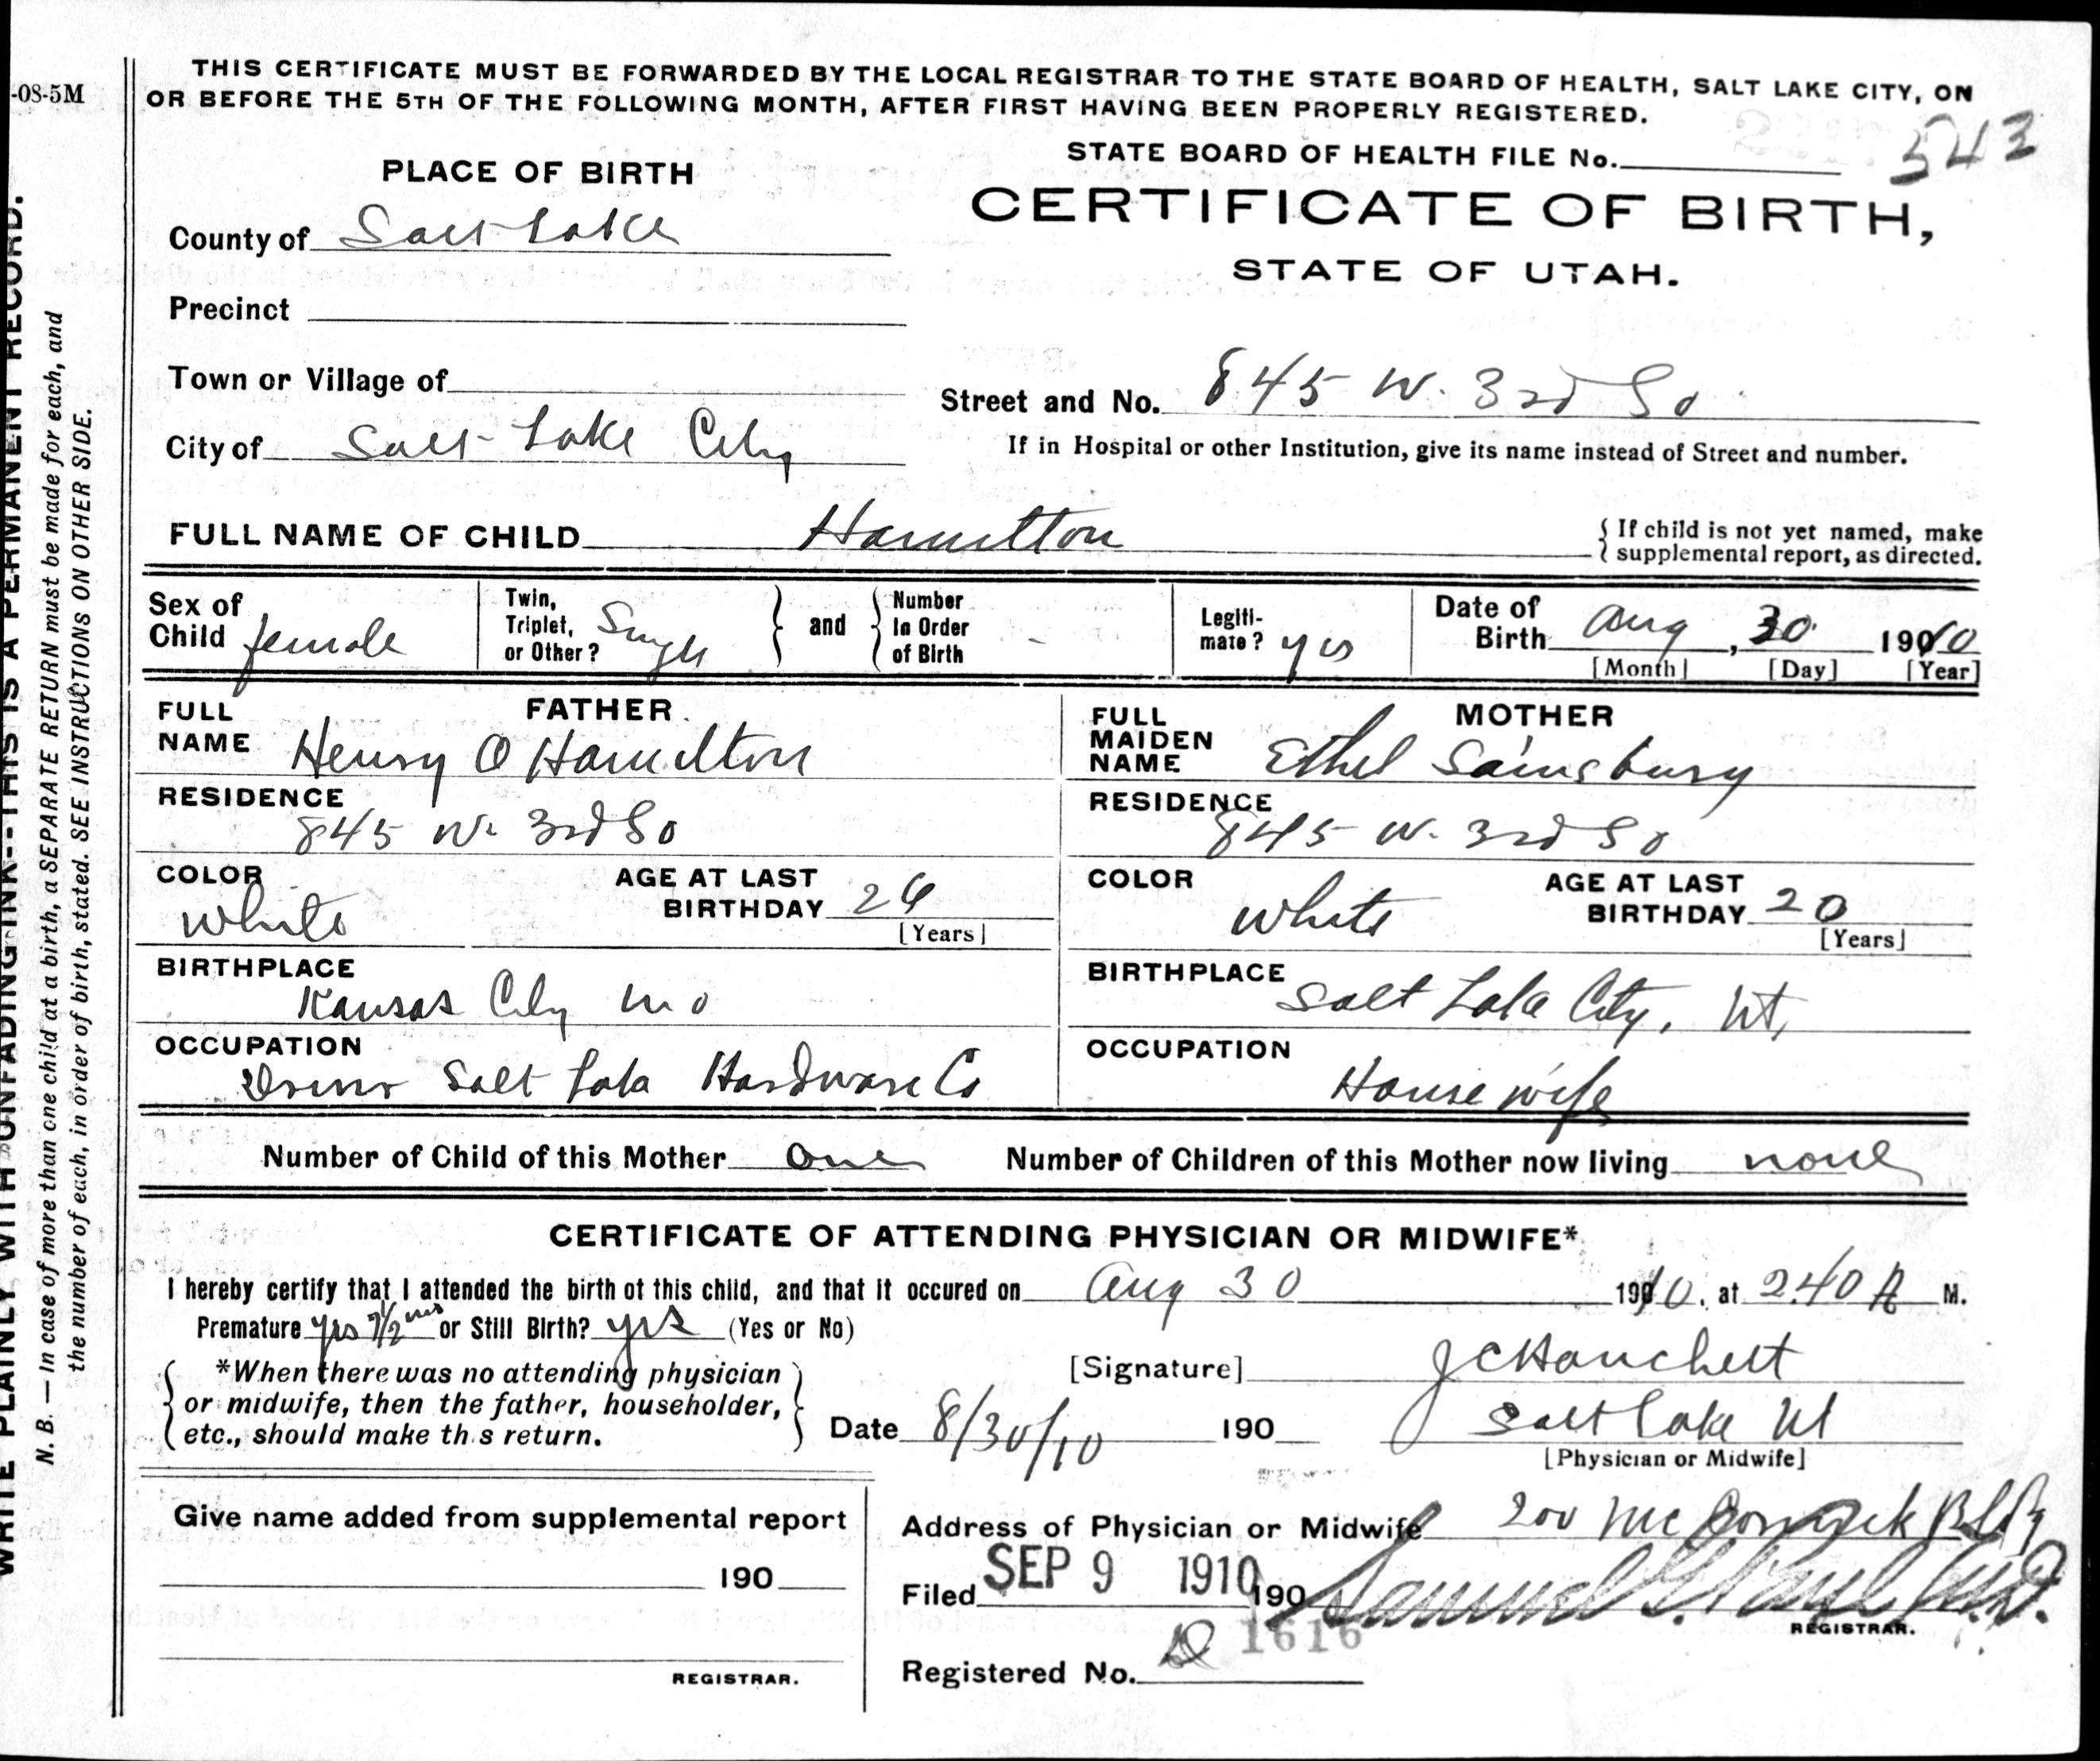 -08-5M
THIS CERTIFICATE MUST BE FORWARDED BY THE LOCAL REGISTRAR TO THE STATE BOARD OF HEALTH, SALT LAKE CITY, ON
OR BEFORE THE 5TH OF THE FOLLOWING MONTH, AFTER FIRST HAVING BEEN PROPERLY REGISTERED.
STATE BOARD OF HEALTH FILE No. 543
PLACE OF BIRTH
CERTIFICATE OF BIRTH,
STATE OF UTAH.
County of Salt Lake
Precinct
Town or Village of
Street and No. 845 W. 3rd So
City of Salt Lake City
If in Hospital or other Institution, give its name instead of Street and number.
FULL NAME OF CHILD Hamilton
{ If child is not yet named, make
supplemental report, as directed.
Sex of Child female
Twin, Triplet, or Other? Single } and { Number In Order of Birth -
Legiti-mate? yes
Date of Birth Aug, 30 1910
[Month] [Day] [Year]
FATHER
FULL NAME Henry O Hamilton
RESIDENCE
845 W. 3rd So
COLOR White
AGE AT LAST BIRTHDAY 26
[Years]
BIRTHPLACE
Kansas City Mo
OCCUPATION
Driver Salt Lake Hardware Co
MOTHER
FULL MAIDEN NAME Ethel Sainsbury
RESIDENCE
845 W. 3rd So
COLOR White
AGE AT LAST BIRTHDAY 20
[Years]
BIRTHPLACE
Salt Lake City, Ut,
OCCUPATION
House wife
Number of Child of this Mother one Number of Children of this Mother now living none
CERTIFICATE OF ATTENDING PHYSICIAN OR MIDWIFE*
I hereby certify that I attended the birth of this child, and that it occured on Aug 30 1910, at 2.40 A M.
Premature yes 7 1/2 mos or Still Birth? yes (Yes or No)
*When there was no attending physician
or midwife, then the father, householder,
etc., should make th s return.
[Signature] J C Hanchett
Date 8/30/10 190
Salt Lake Ut
[Physician or Midwife]
Give name added from supplemental report
190
REGISTRAR.
Address of Physician or Midwife 200 McCornick Bldg
Filed SEP 9 1910 190 Samuel G. Paul M.D.
REGISTRAR.
Registered No. 1616
WRITE PLAINLY WITH UNFADING INK--THIS IS A PERMANENT RECORD.
N. B. — In case of more than one child at a birth, a SEPARATE RETURN must be made for each, and
the number of each, in order of birth, stated. SEE INSTRUCTIONS ON OTHER SIDE.